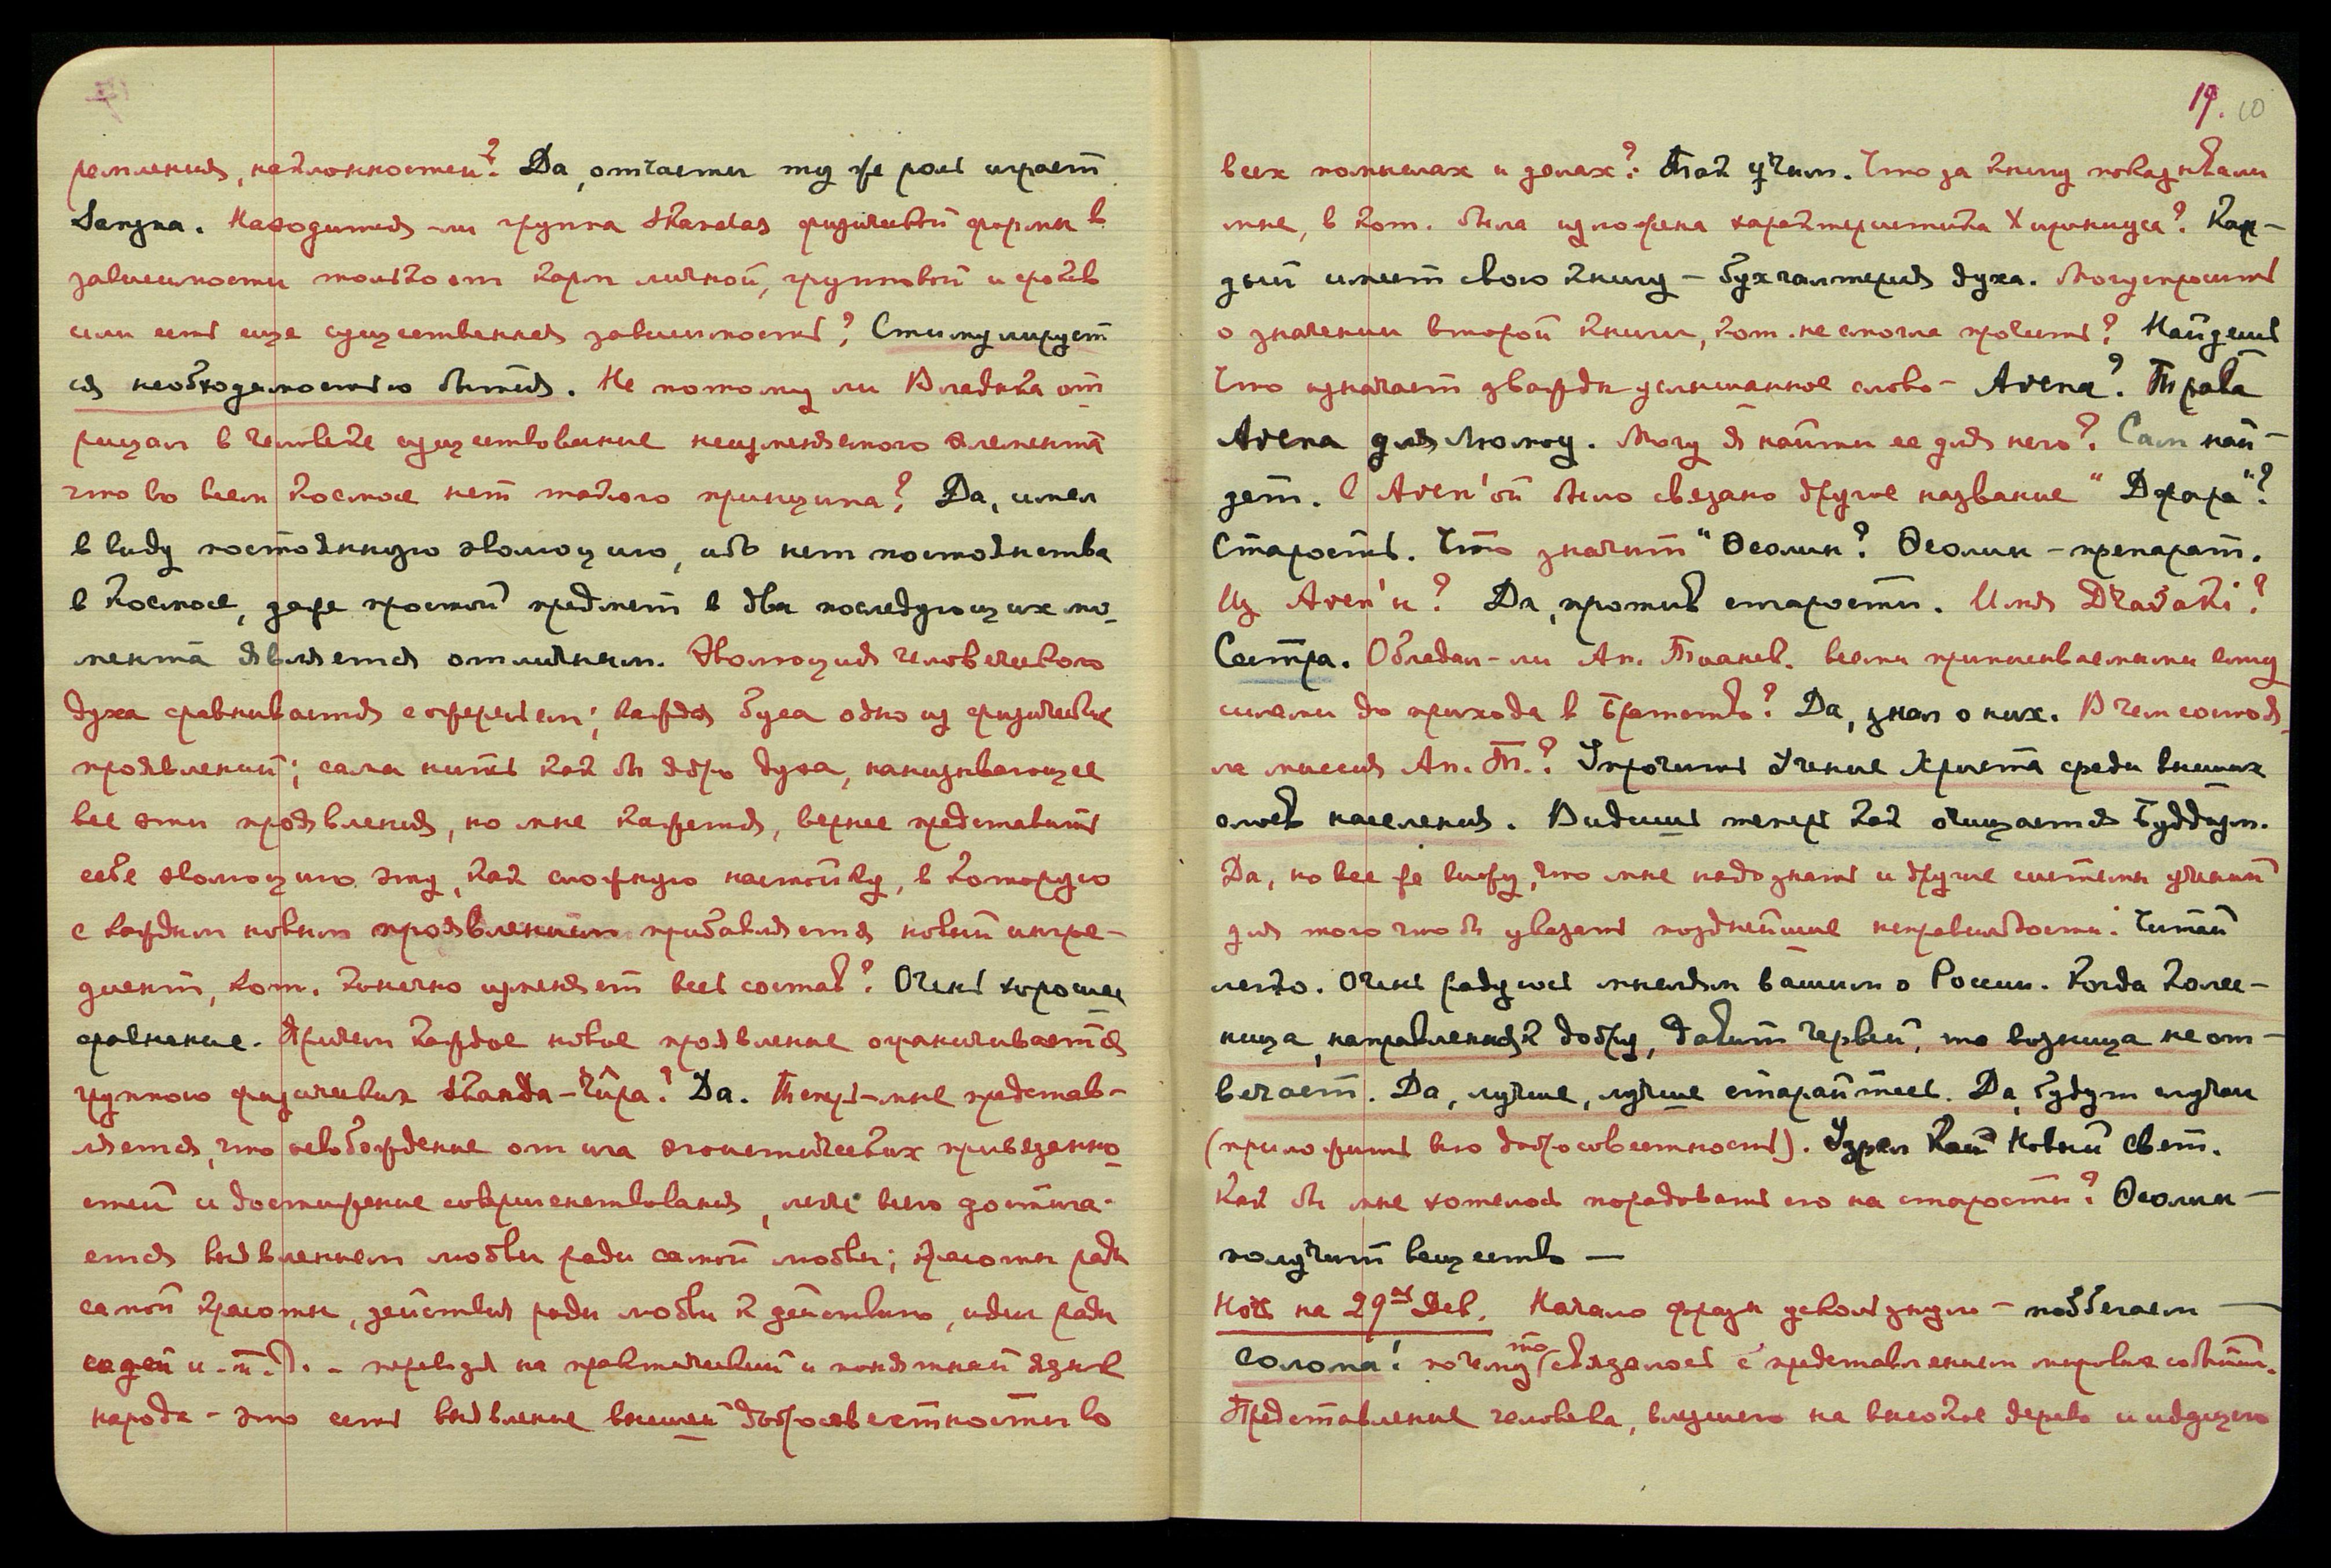 ремления, наклонностей? Да, отчасти ту же роль играет
Sangna. Находится-ли группа Skandas физической формы в
зависимости только от карм личной, групповой и сроков
или есть еще существенная зависимость? Стимулирует
ся необходимостью бытия. Не потому ли Владыка от
рицал в человеке существование неизменяемого элемента
что во всем космосе нет такого принципа? Да, имел
в виду постоянную эволюцию, ибо нет постоянства
в Космосе, даже простой предмет в два последующих мо-
мента является отличным. Эволюция человеческого
духа сравнивается с ожерельем; каждая буса одно из физических
проявлений; сама нить как бы ядро духа, нанизывающее
все эти проявления, но мне кажется, вернее представить
себе эволюцию эту, как сложную настойку, в которую
с каждым новым проявлением прибавляется новый ингре-
диент, кот. конечно изменяет весь состав? Очень хорошее
сравнение. Причем каждое новое проявление ограничивается
группою физических Skanda-
Да. Теперь-мне представ-
ляется, что освобождение от ига эгоистических привязанно
стей и достижение совершенствования, легче всего достига-
ется выявлением любви ради самой любви; красоты ради
самой красоты, действия ради любви к действию, идеи ради
и.т.д. - переводя на практический и понятный язык
народа - это есть выявление высшей добросовестности во
19. 10
всех помыслах и делах? Так учим. Что за книгу показывали
мне, в кот. была изложена характеристика Хирониуса? Каж-
дый имеет свою книгу - бухгалтерия духа. Могу спросить
о значении второй книги, кот. не смогла прочить? Найдешь
Что означает дважды услышанное слово - Avena? Трава
Avena для Люмоу. Могу я найти ее для него? Сам най-
дет. С Aven'ой было связано другое название "Джара"?
Старость. Что значит "Осолин? Осолин - препарат.
Из Aven'ы? Да, против старости. Имя
Сестра. Обладал-ли Ап. Тианск. всеми приписываемыми ему
силами до прихода в Братство? Да, знал о них. В чем состоя
ла миссия Ап. Т.? Упрочить Учение Христа среди высших
слоев населения. Видишь теперь как очищается Буддизм.
Да, но все же вижу, что мне надо знать и другие системы учений
для того чтобы указать позднейшие неправильности. Читай
легко. Очень радуюсь мыслям вашим о России. Когда колес-
ница, направленная к добру, давит червей, то возница не от-
вечает. Да, лучше, лучше старайтесь. Да, будут случаи
(приложить всю добросовестность). Узрел Кай Новый Свет.
Как бы мне хотелось порадовать его на старости? Осолин -
получит вещество —
Ночь на 29ое Дек. Начало фразы ускользнуло - побегаем —
солома! почему то связалось с представлением мировых событий.
Представление человека, влезшего на высокое дерево и идущего